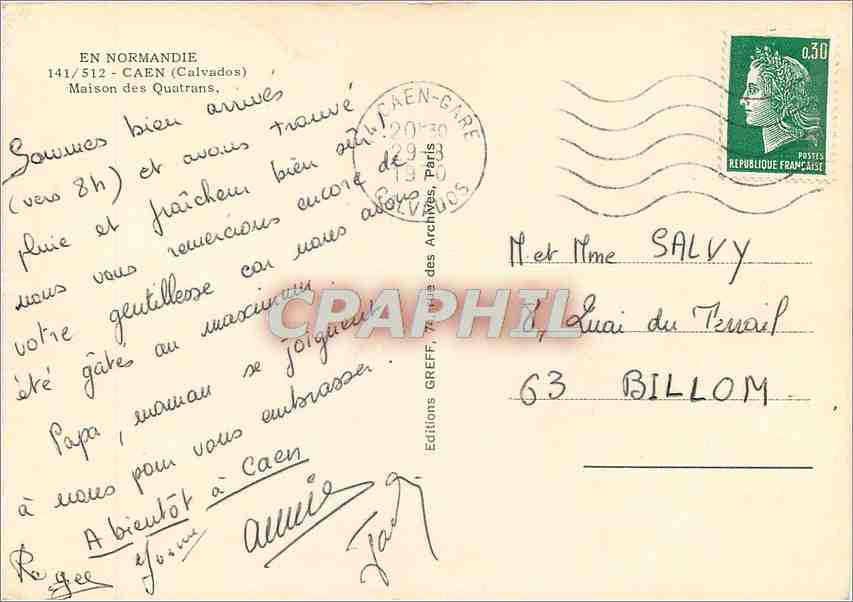 EN NORMANDIE
141/512 - CAEN (Calvados)
Maison des Quatrans.
Sommes bien arrivés
(vers 8h) et avons trouvé
pluie et fraîcheur bien sûr!
nous vous remercions encore de
votre gentillesse car nous avons
été gâtés au maximum.
Papa, maman se joignent
à nous pour vous embrasser.
A bientôt à Caen
Yvonne
Annie
CAEN-GARE
20H30
29-8
CALVADOS
0,30
POSTES
REPUBLIQUE FRANÇAISE
Editions GREFF, rue des Archives, Paris
CPAPHIL
M et Mme SALVY
8, Quai du Terrail
63 BILLOM